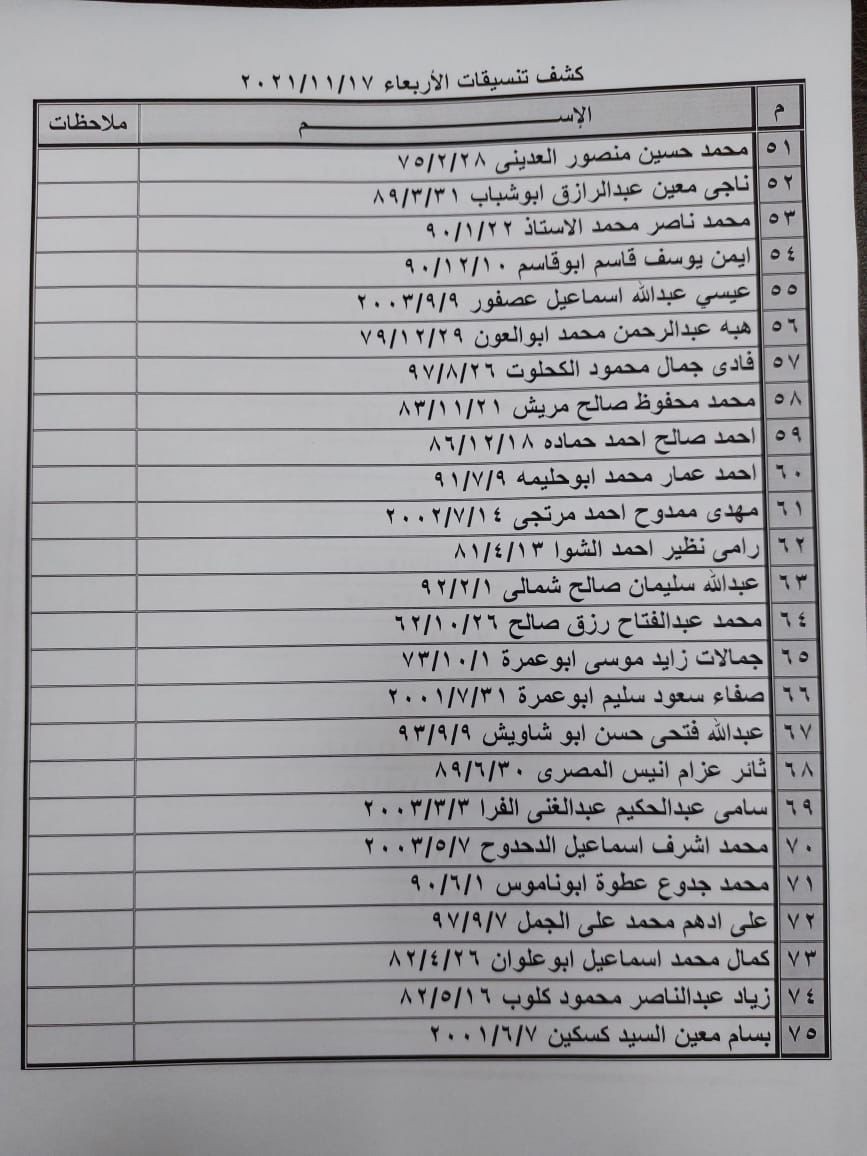 كشف تنسيقات الأربعاء ٢٠٢١/١١/١٧
م الإســــم ملاحظات
٥١ محمد حسين منصور العدينى ٧٥/٢/٢٨
٥٢ ناجى معين عبدالرازق ابوشباب ٨٩/٣/٣١
٥٣ محمد ناصر محمد الاستاذ ٩٠/١/٢٢
٥٤ ايمن يوسف قاسم ابوقاسم ٩٠/١٢/١٠
٥٥ عيسي عبدالله اسماعيل عصفور ٢٠٠٣/٩/٩
٥٦ هبه عبدالرحمن محمد ابوالعون ٧٩/١٢/٢٩
٥٧ فادى جمال محمود الكحلوت ٩٧/٨/٢٦
٥٨ محمد محفوظ صالح مريش ٨٣/١١/٢١
٥٩ احمد صالح احمد حماده ٨٦/١٢/١٨
٦٠ احمد عمار محمد ابوحليمه ٩١/٧/٩
٦١ مهدى ممدوح احمد مرتجى ٢٠٠٢/٧/١٤
٦٢ رامى نظير احمد الشوا ٨١/٤/١٣
٦٣ عبدالله سليمان صالح شمالى ٩٢/٢/١
٦٤ محمد عبدالفتاح رزق صالح ٦٢/١٠/٢٦
٦٥ جمالات زايد موسى ابوعمرة ٧٣/١٠/١
٦٦ صفاء سعود سليم ابوعمرة ٢٠٠١/٧/٣١
٦٧ عبدالله فتحى حسن ابو شاويش ٩٣/٩/٩
٦٨ ثائر عزام انيس المصرى ٨٩/٦/٣٠
٦٩ سامى عبدالحكيم عبدالغنى الفرا ٢٠٠٣/٣/٣
٧٠ محمد اشرف اسماعيل الدحدوح ٢٠٠٣/٥/٧
٧١ محمد جدوع عطوة ابوناموس ٩٠/٦/١
٧٢ على ادهم محمد على الجمل ٩٧/٩/٧
٧٣ كمال محمد اسماعيل ابوعلوان ٨٢/٤/٢٦
٧٤ زياد عبدالناصر محمود كلوب ٨٢/٥/١٦
٧٥ بسام معين السيد كسكين ٢٠٠١/٦/٧